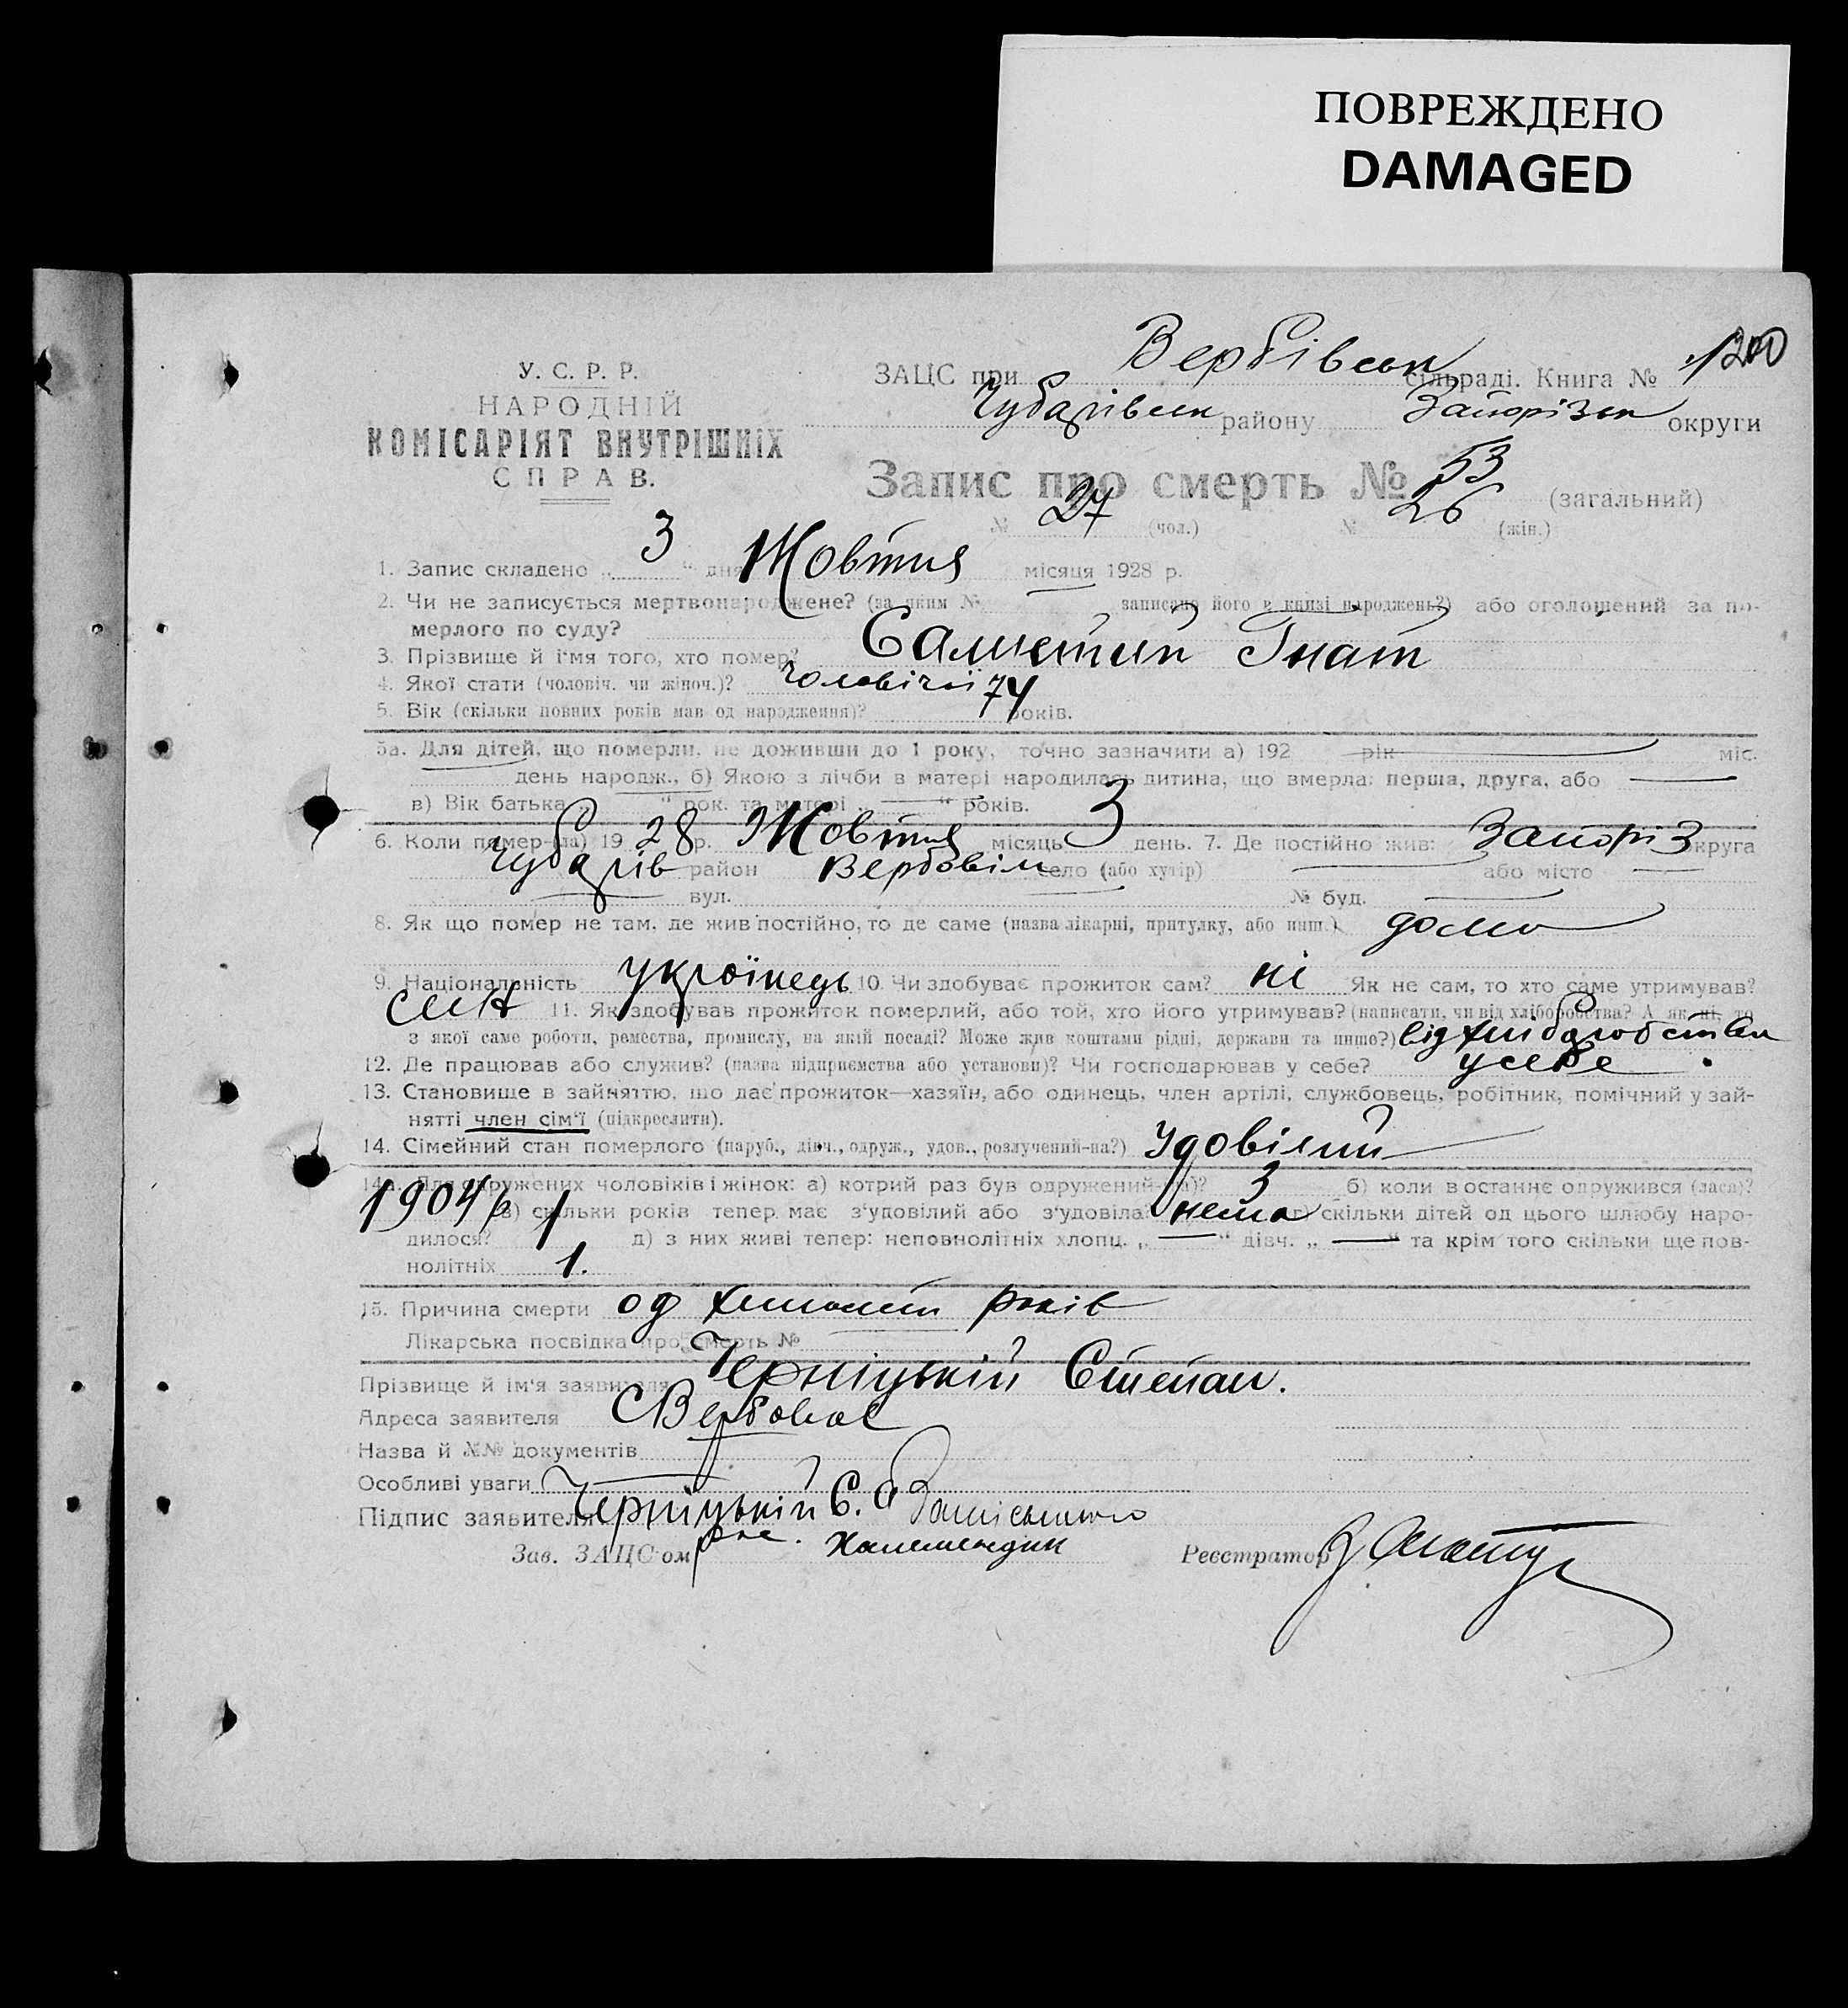 ПОВРЕЖДЕНО
DAMAGED
У. С. Р. Р.
НАРОДНІЙ
КОМІСАРІЯТ ВНУТРІШНІХ
СПРАВ.
ЗАЦС при Вербівськ сільраді. Книга №
Чубарівськ району Запорізьк округи
Запис про смерть № 53 (загальний)
№ 27 (чол.) № 26 (жін.)
1. Запис складено „ 3 “ дня Жовтня місяця 1928 р.
2. Чи не записується мертвонароджене? (за яким № записано його в книзі народжень?) або оголошений за по-
мерлого по суду?
3. Прізвище й ім'я того, хто помер? Гнат
4. Якої стати (чоловіч. чи жіноч.)? чоловічої
5. Вік (скільки повних років мав од народження)? 74 років.
5а. Для дітей, що померли, не доживши до 1 року, точно зазначити а) 192 рік міс.
день народж., б) Якою з лічби в матері народилась дитина, що вмерла: перша, друга, або
в) Вік батька „ “ рок. та матері „ “ років.
6. Коли помер(ла) 19 28 р. Жовтня місяць 3 день. 7. Де постійно жив: Запоріз округа
Чубарів район Вербовім село (або хутір) або місто
вул. № буд.
8. Як що помер не там, де жив постійно, то де саме (назва лікарні, притулку, або инш.) дома
9. Національність українець 10. Чи здобуває прожиток сам? ні Як не сам, то хто саме утримував?
син 11. Як здобував прожиток померлий, або той, хто його утримував? (написати, чи від хліборобства? А як ні, то
з якої саме роботи, ремества, промислу, на якій посаді? Може жив коштами рідні, держави та инше?) від хліборобства
12. Де працював або служив? (назва підприємства або установи)? Чи господарював у себе? усебе
13. Становище в зайняттю, що дає прожиток—хазяїн, або одинець, член артілі, службовець, робітник, помічний у зай-
нятті член сім'ї (підкреслити).
14. Сімейний стан померлого (паруб., дівч., одруж., удов., розлучений-на?) Удовілий
14а. Для одружених чоловіків і жінок: а) котрий раз був одружений(на)? 3 б) коли востаннє одружився (лася)?
1904 р в) скільки років тепер має з'удовілий або з'удовіла? нема г) скільки дітей од цього шлюбу наро-
дилося? 1 д) з них живі тепер: неповнолітніх хлопц. „ “ дівч. „ “ та крім того скільки ще пов-
нолітніх 1.
15. Причина смерти од років
Лікарська посвідка про смерть №
Прізвище й ім'я заявителя Черніцькій Степан.
Адреса заявителя С Вербовое
Назва й №№ документів
Особливі уваги
Підпис заявителя Черніцькій С.
Зав. ЗАЦС'ом Реєстратор